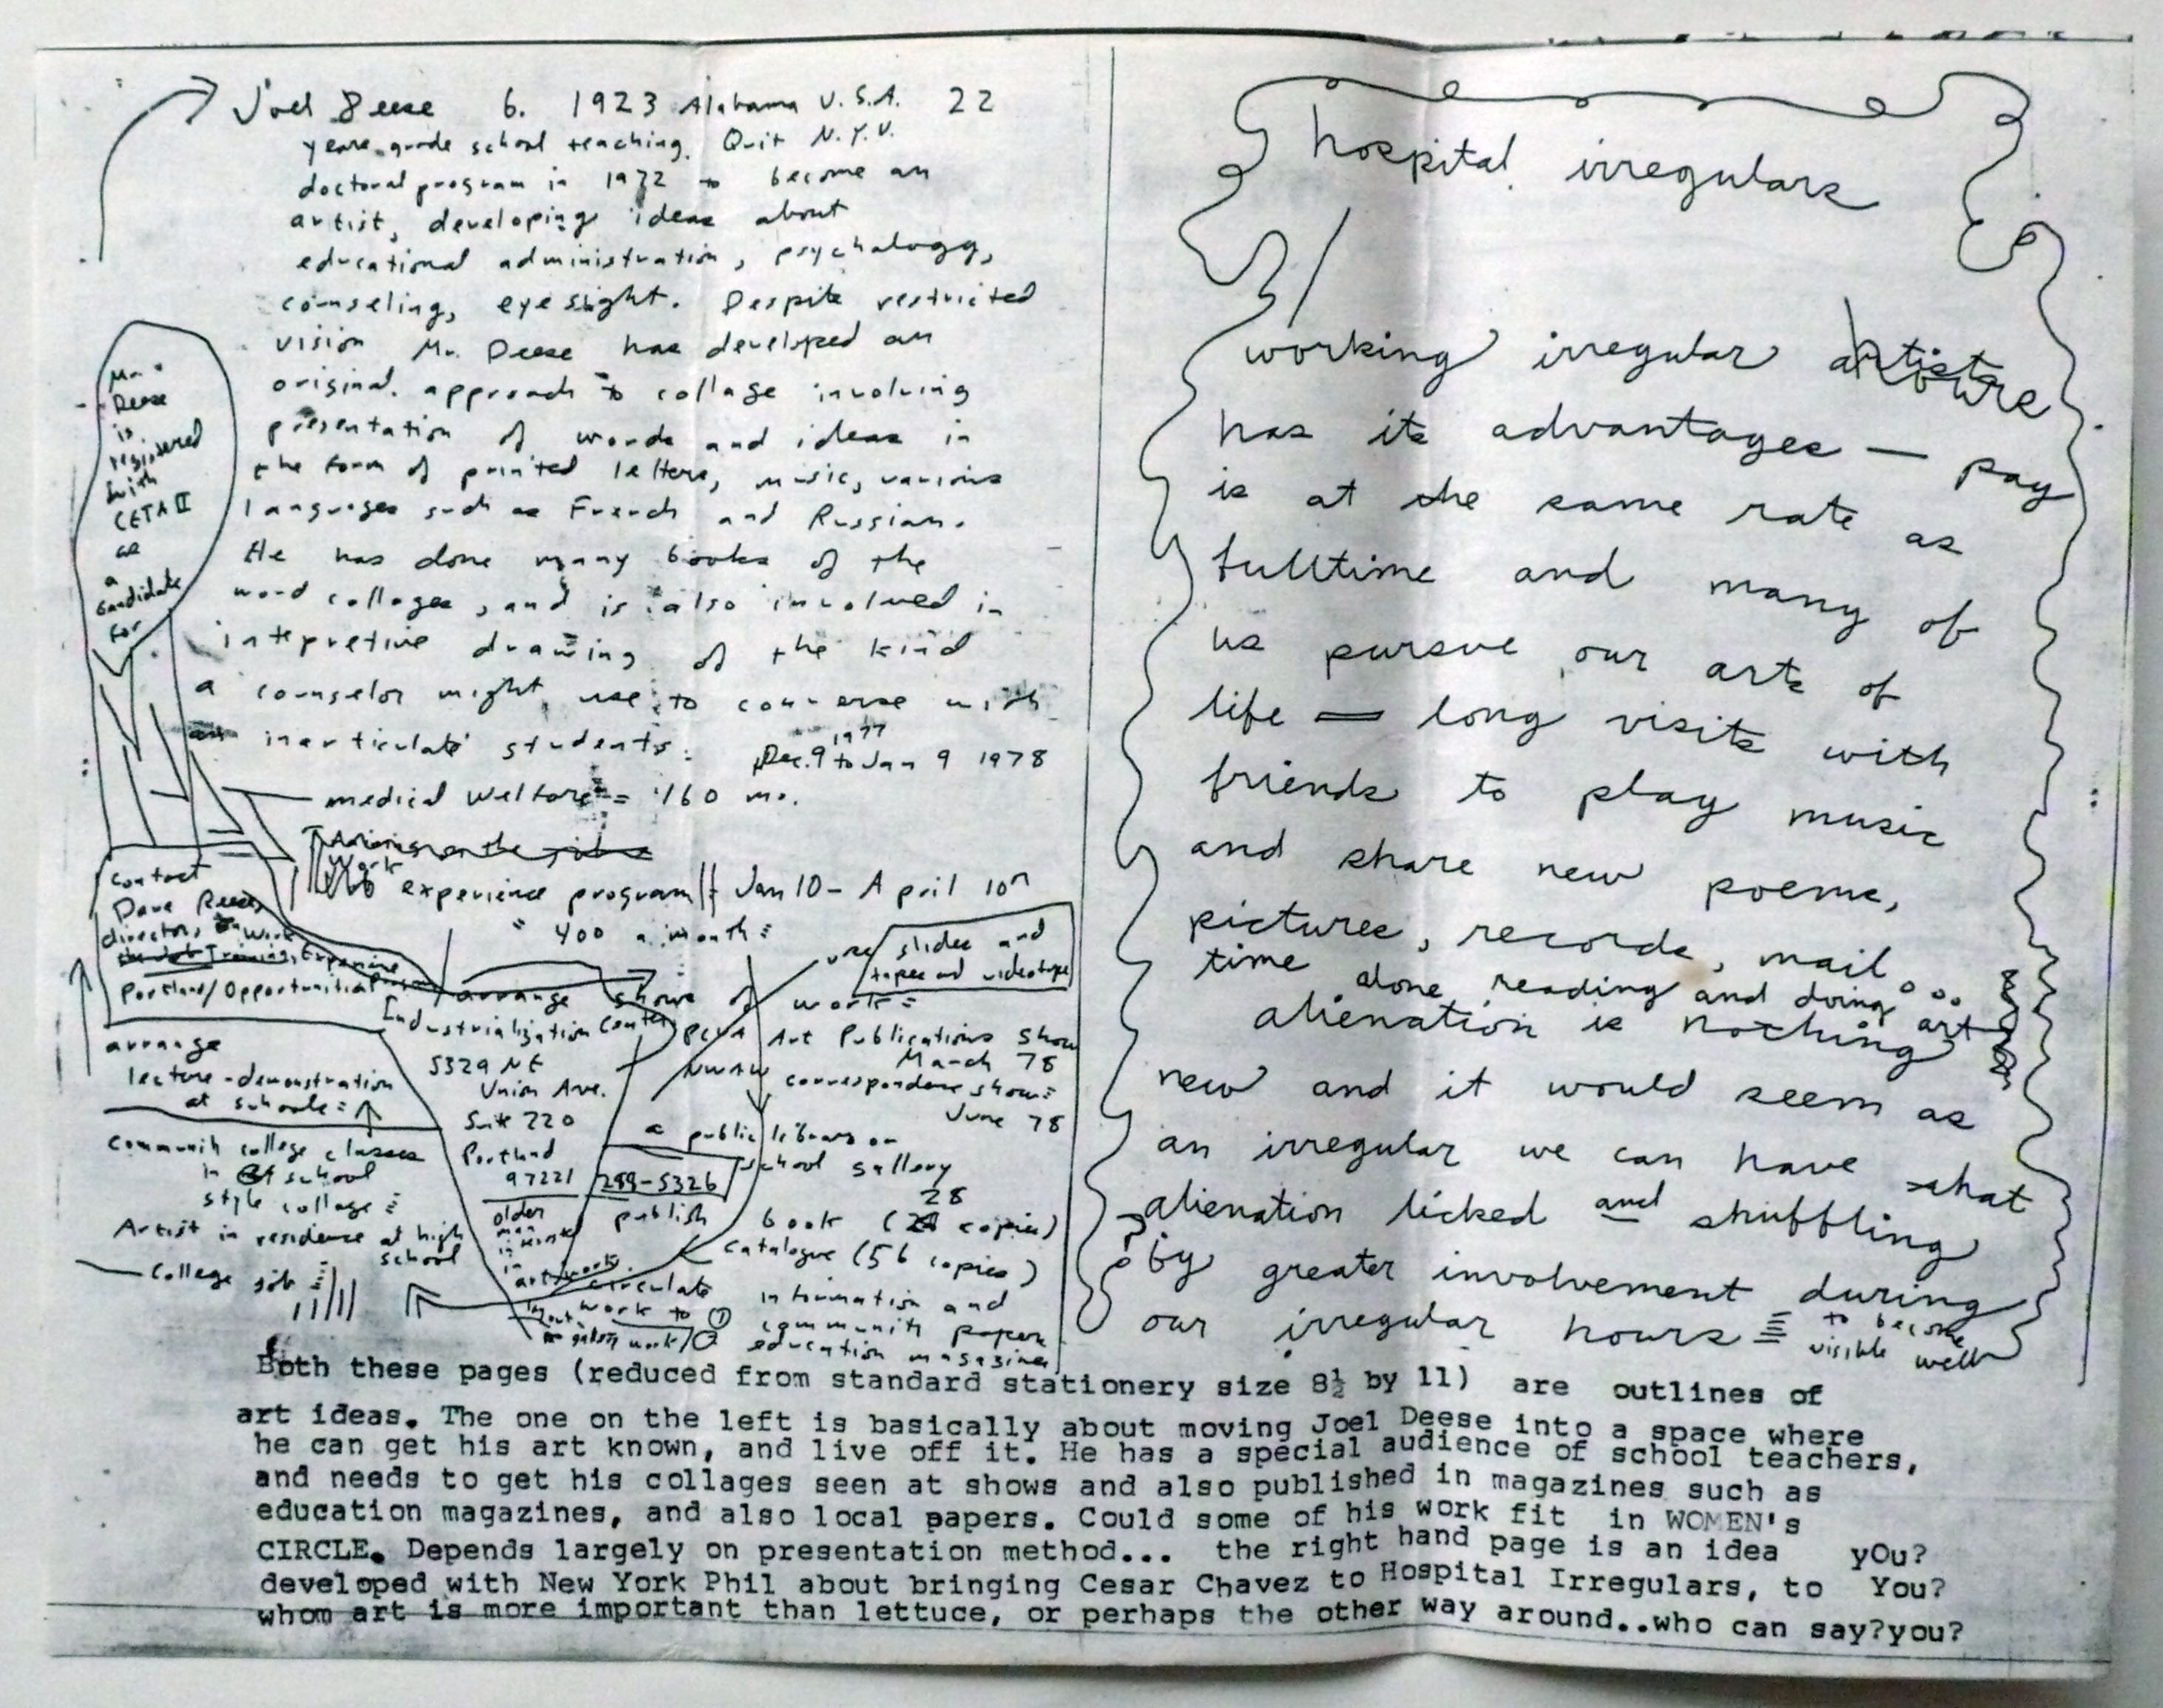 Joel Deese b. 1923 Alabama U.S.A. 22
years grade school teaching. Quit N.Y.U.
doctoral program in 1972 to become an
artist, developing ideas about
educational administration, psychology,
counseling, eyesight. Despite restricted
vision Mr. Deese has developed an
original approach to collage involving
presentation of words and ideas in
the form of printed letters, music, various
languages such as French and Russian.
He has done many books of the
word collages, and is also involved in
intepretive drawing of the kind
a counselor might use to converse with
inarticulate students.
Dec. 9 1977 to Jan 9 1978
medical welfare = 160 mo.
Work experience program Jan 10 - April 10
400 a month
Mr.
Deese
is
registered
with
CETA II
as
a
candidate
for
Contact
Dave Reese,
director, Work
Training, Experience
Portland/Opportunities
Industrialization Center
5329 NE
Union Ave.
Suite 220
Portland
97221
288-5326
arrange
lecture-demonstration
at schools
Community college classes
in school
style collage
Artist in residence at high
school
College job
arrange shows of work
use slides and
tapes and videotape
PCVA Art Publications Show
March 78
NWAW correspondence show
June 78
a public library or
school gallery
older
man
in
artwork
publish book (28 copies)
catalogue (56 copies)
circulate information and
work to community papers
education magazines
hospital irregulars
working irregular
has its advantages — pay
is at the same rate as
fulltime and many of
us pursue our arts of
life — long visits with
friends to play music
and share new poems,
pictures, records, mail
time alone reading and doing art
alienation is nothing
new and it would seem as
an irregular we can have that
alienation licked and shuffling
by greater involvement during
our irregular hours to become
visible well
Both these pages (reduced from standard stationery size 8½ by 11) are outlines of
art ideas. The one on the left is basically about moving Joel Deese into a space where
he can get his art known, and live off it. He has a special audience of school teachers,
and needs to get his collages seen at shows and also published in magazines such as
education magazines, and also local papers. Could some of his work fit in WOMEN's
CIRCLE. Depends largely on presentation method... the right hand page is an idea yOu?
developed with New York Phil about bringing Cesar Chavez to Hospital Irregulars, to You?
whom art is more important than lettuce, or perhaps the other way around..who can say?you?